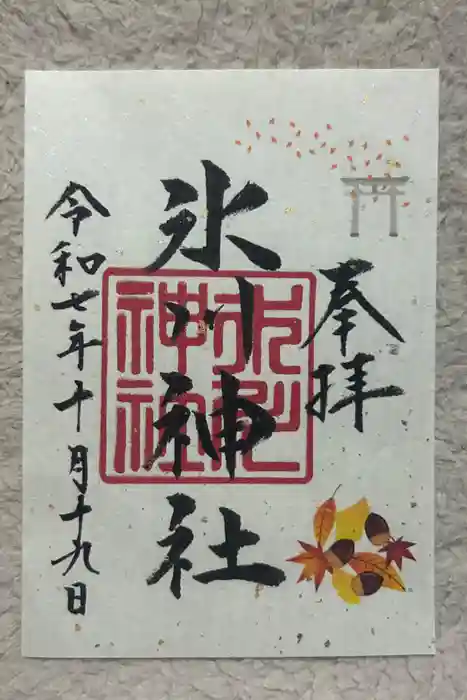 奉拝
氷川神社
氷川神社
令和七年十月十九日